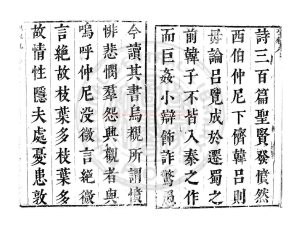 詩三百篇聖賢發憤然
西伯仲尼下儕韓呂則
毋論呂覽成於遷蜀之
前韓子不皆入秦之作
而巨姦小辯飾詐驚愚
今讀其書烏覩所謂憤
悱悲憫羣怨興觀者與
嗚呼仲尼沒微言絶微
言絶故枝葉多枝葉多
故情性隱夫處憂患敦